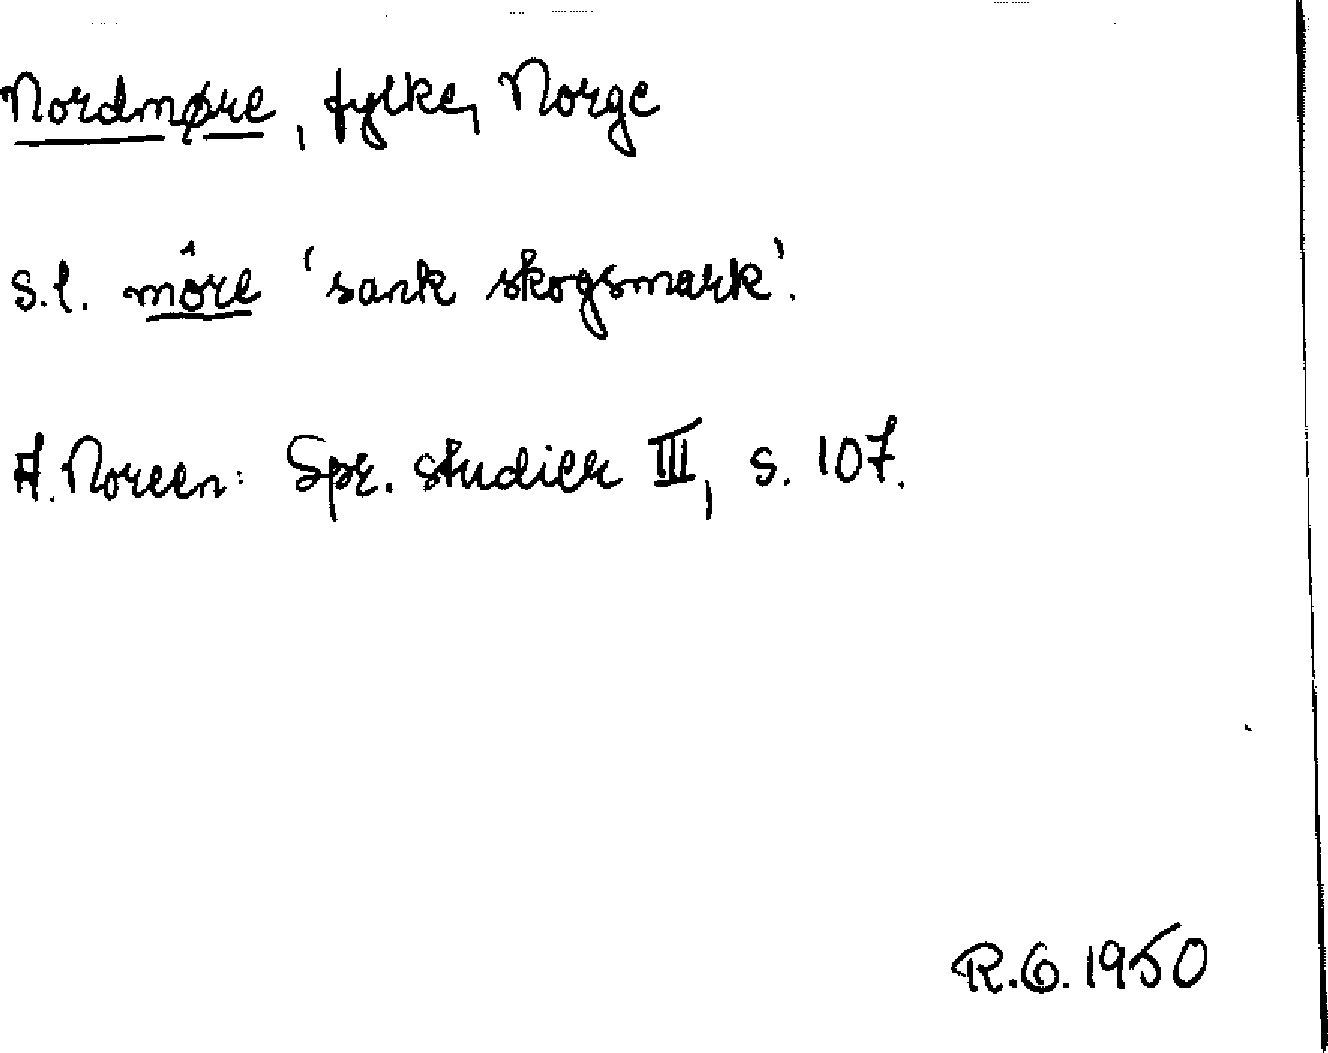 Nordmøre, fylke, Norge
s.l. môre 'sank skogsmark'.
A. Noreen: Spr. studier III, s. 107.
R.G. 1950